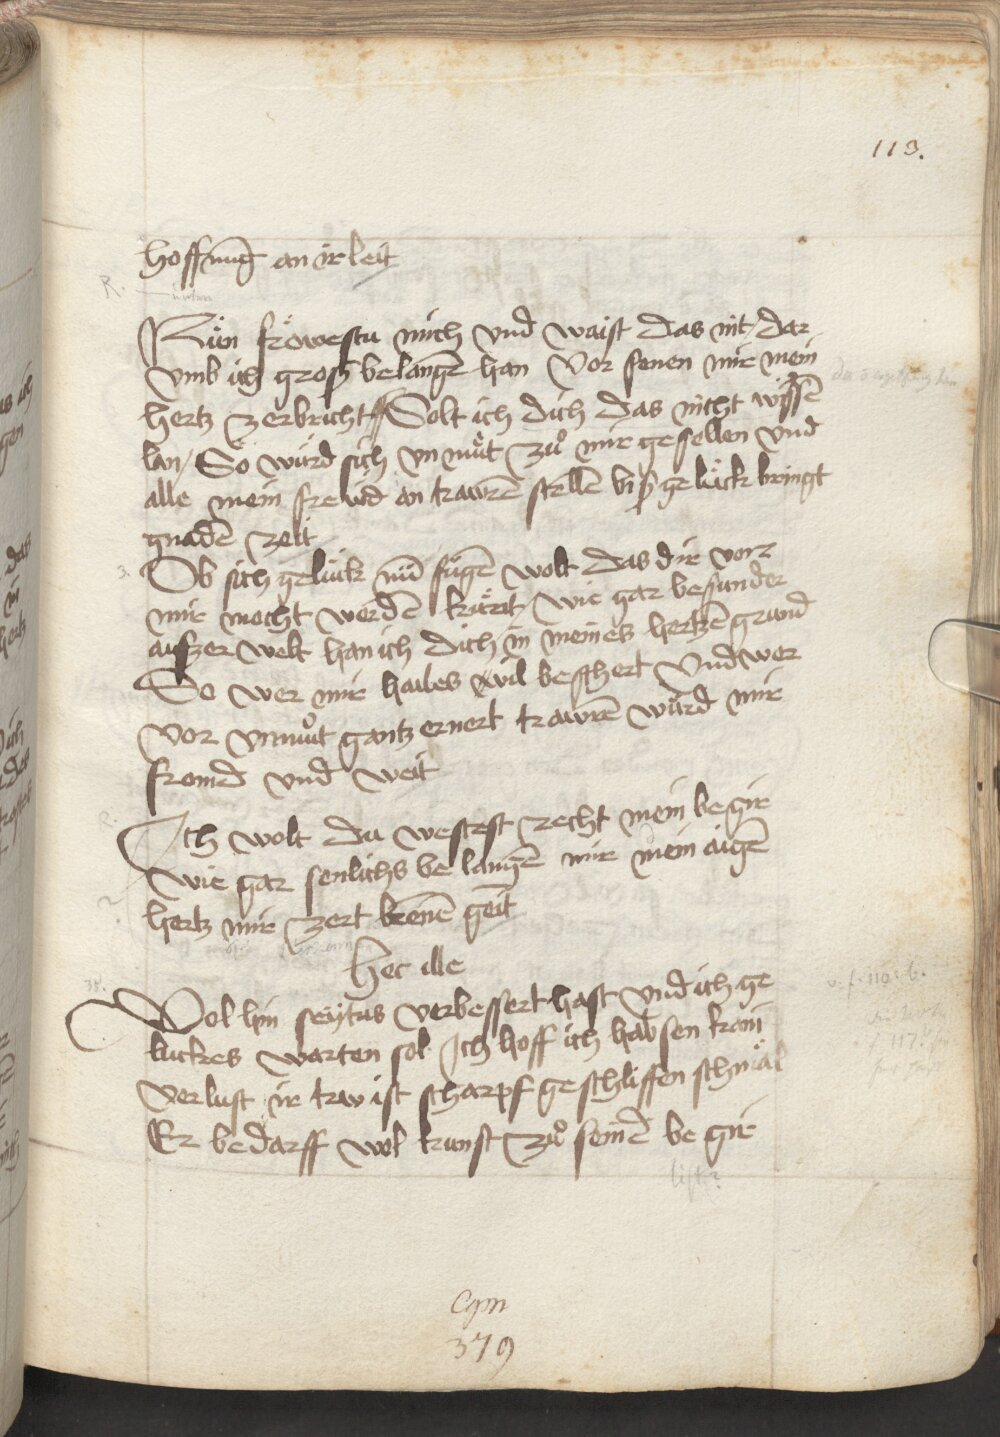 113.
hoffnūg an ir leit
R.
Nůn frȯwestu mich vnd waist das nit / dar
vmb ich groß belangē han Vor senen mir mein
hertz zerbricht Solt ich dich das nicht wissē
lan / So wurd sich vn můt zů mir gesellen vnd
alle mein frewd an trawrē stellē biß gelück bringt
gnadē zeit
3.
Ob sich gelück nū fügē wolt das dir vor
mir mocht werdē kürtz wie gar besunder
ausser welt han ich dich in meines hertzē grund
So wer mir hailes vil beschert Vnd wer
vor vnmůt gantz ernert trawrē würd mir
fromd vnd weit
R.
Ich wolt du westest recht mein begir
wie gar senlichs belangē mir mein aigē
hertz mir zert brenē geit
Hec ille
Wol hin seytus verbessert hast vnd ich ge
luckes warten sol Ich hoff ich hab sen kain
verlust ir trw ist scharpf geschliffen schmal
Er bedarff wol kunst zů seinē begir
list?
Cgm
379